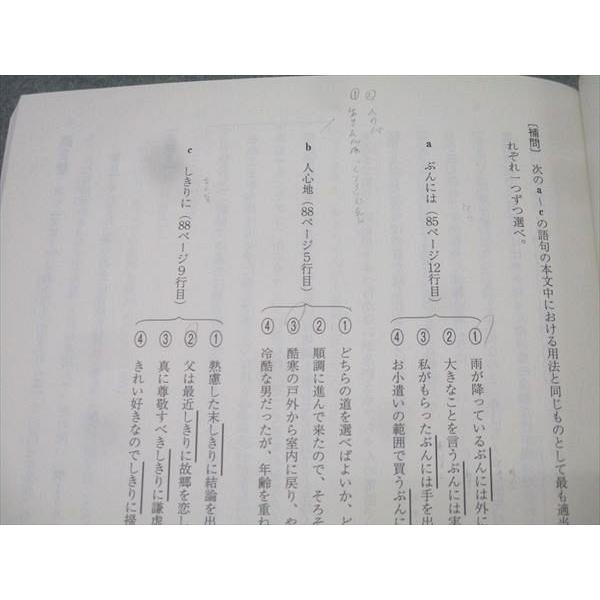 〔補問〕 次のa～cの語句の本文中における用法と同じものとして最も適当
れぞれ一つずつ選べ。
a ぶんには(85ページ12行目)
① 雨が降っているぶんには外に
② 大きなことを言うぶんには実
③ 私がもらったぶんには手を出
④ お小遣いの範囲で買うぶんに
b 人心地(88ページ5行目)
① どちらの道を選べばよいか、ど
② 順調に進んで来たので、そろそ
③ 酷寒の戸外から室内に戻り、や
④ 冷酷な男だったが、年齢を重ね
c しきりに(88ページ9行目)
① 熟慮した末しきりに結論を出
② 父は最近しきりに故郷を恋し
③ 真に尊敬すべきしきりに謙虚
④ きれい好きなのでしきりに掃